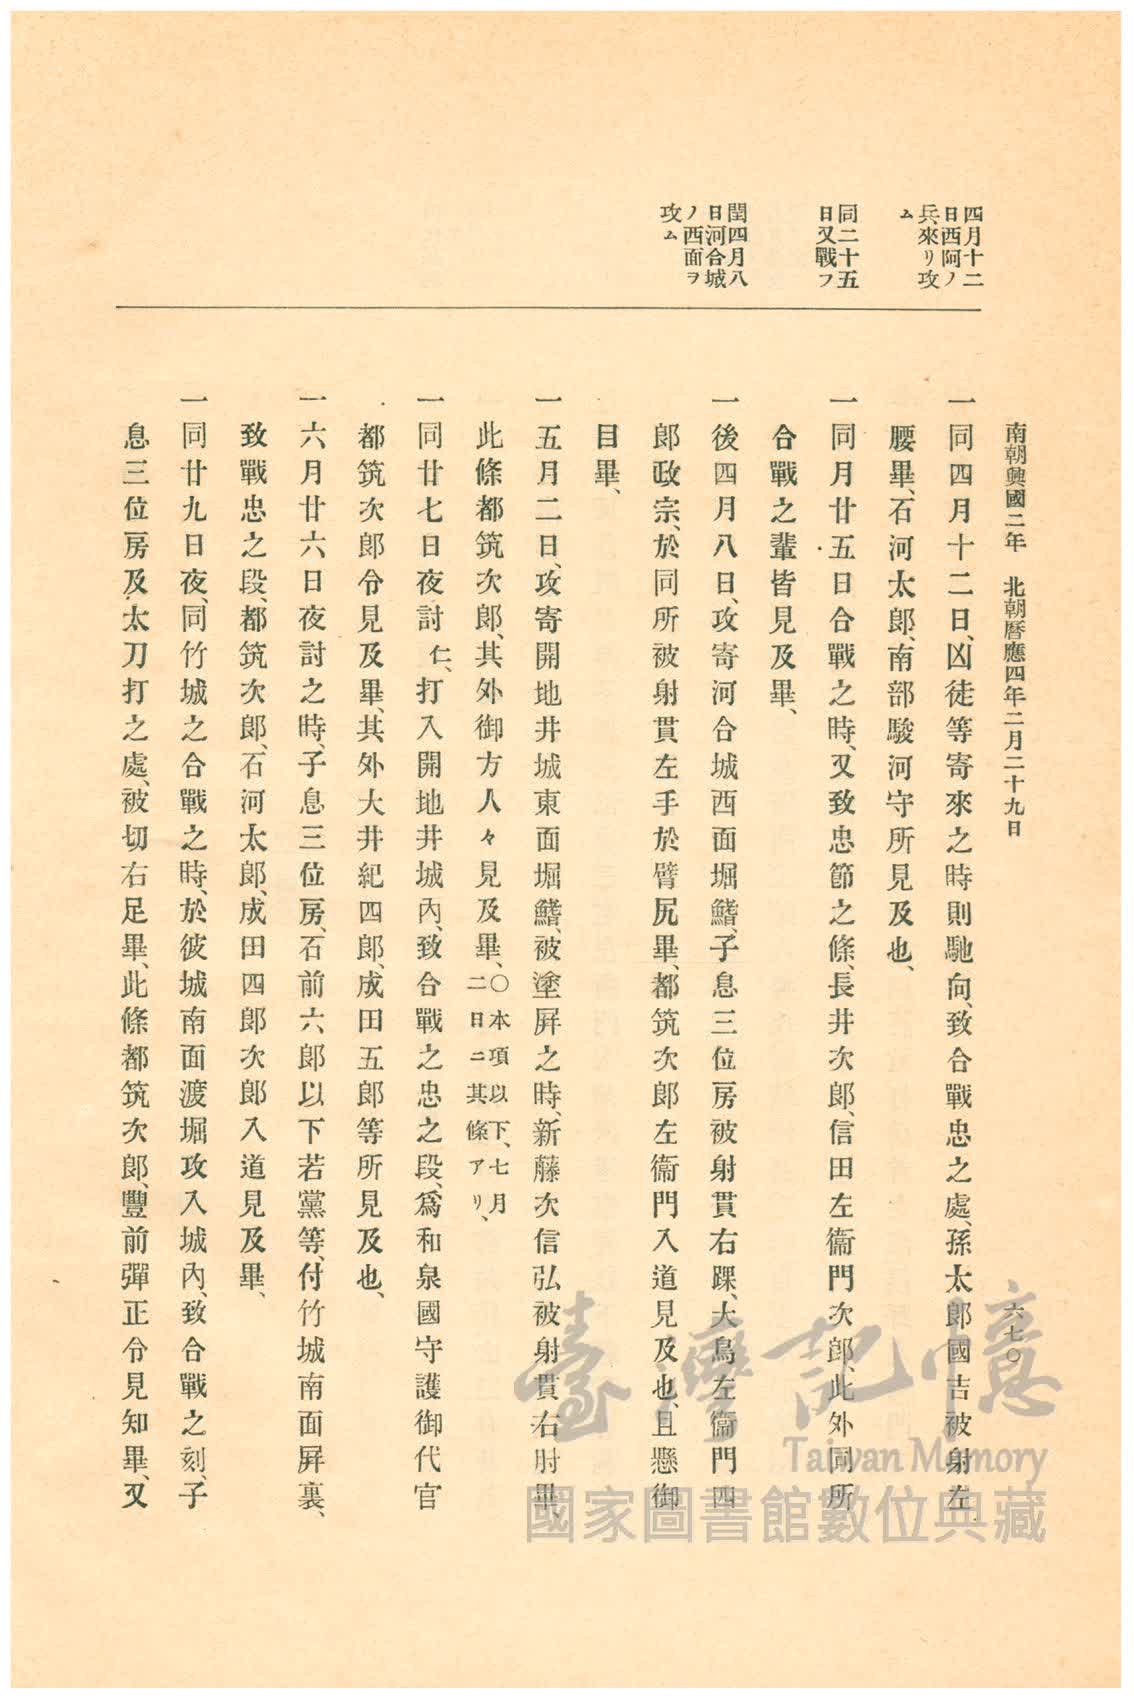 南朝興國二年　北朝曆應四年二月二十九日
六七〇
四月十二
日西阿ノ
兵來リ攻
ム
同二十五
日又戰フ
閏四月八
日河合城
ノ西面ヲ
攻ム
一同四月十二日、凶徒等寄來之時則馳向、致合戰忠之處、孫太郎國吉被射左
腰畢、石河太郎、南部駿河守所見及也、
一同月廿五日合戰之時、又致忠節之條、長井次郎、信田左衞門次郎、此外同所
合戰之輩皆見及畢、
一後四月八日、攻寄河合城西面堀鰭、子息三位房被射貫右踝、大鳥左衞門四
郎政宗、於同所被射貫左手於臂尻畢、都筑次郎左衞門入道見及也、且懸御
目畢、
一五月二日、攻寄開地井城東面堀鰭、被塗屛之時、新藤次信弘被射貫右肘畢、
此條都筑次郎、其外御方人々見及畢、〇本項以下、七月
二日ニ其條アリ、
一同廿七日夜、討仁、打入開地井城內、致合戰之忠之段、爲和泉國守護御代官
都筑次郎令見及畢、其外大井紀四郎、成田五郎等所見及也、
一六月廿六日夜討之時、子息三位房、石前六郎以下若黨等、付竹城南面屛裏、
致戰忠之段、都筑次郎、石河太郎、成田四郎次郎入道見及畢、
一同廿九日夜、同竹城之合戰之時、於彼城南面渡堀攻入城內、致合戰之刻、子
息三位房及太刀打之處、被切右足畢、此條都筑次郎、豐前彈正令見知畢、又
臺灣記憶
Taiwan Memory
國家圖書館數位典藏